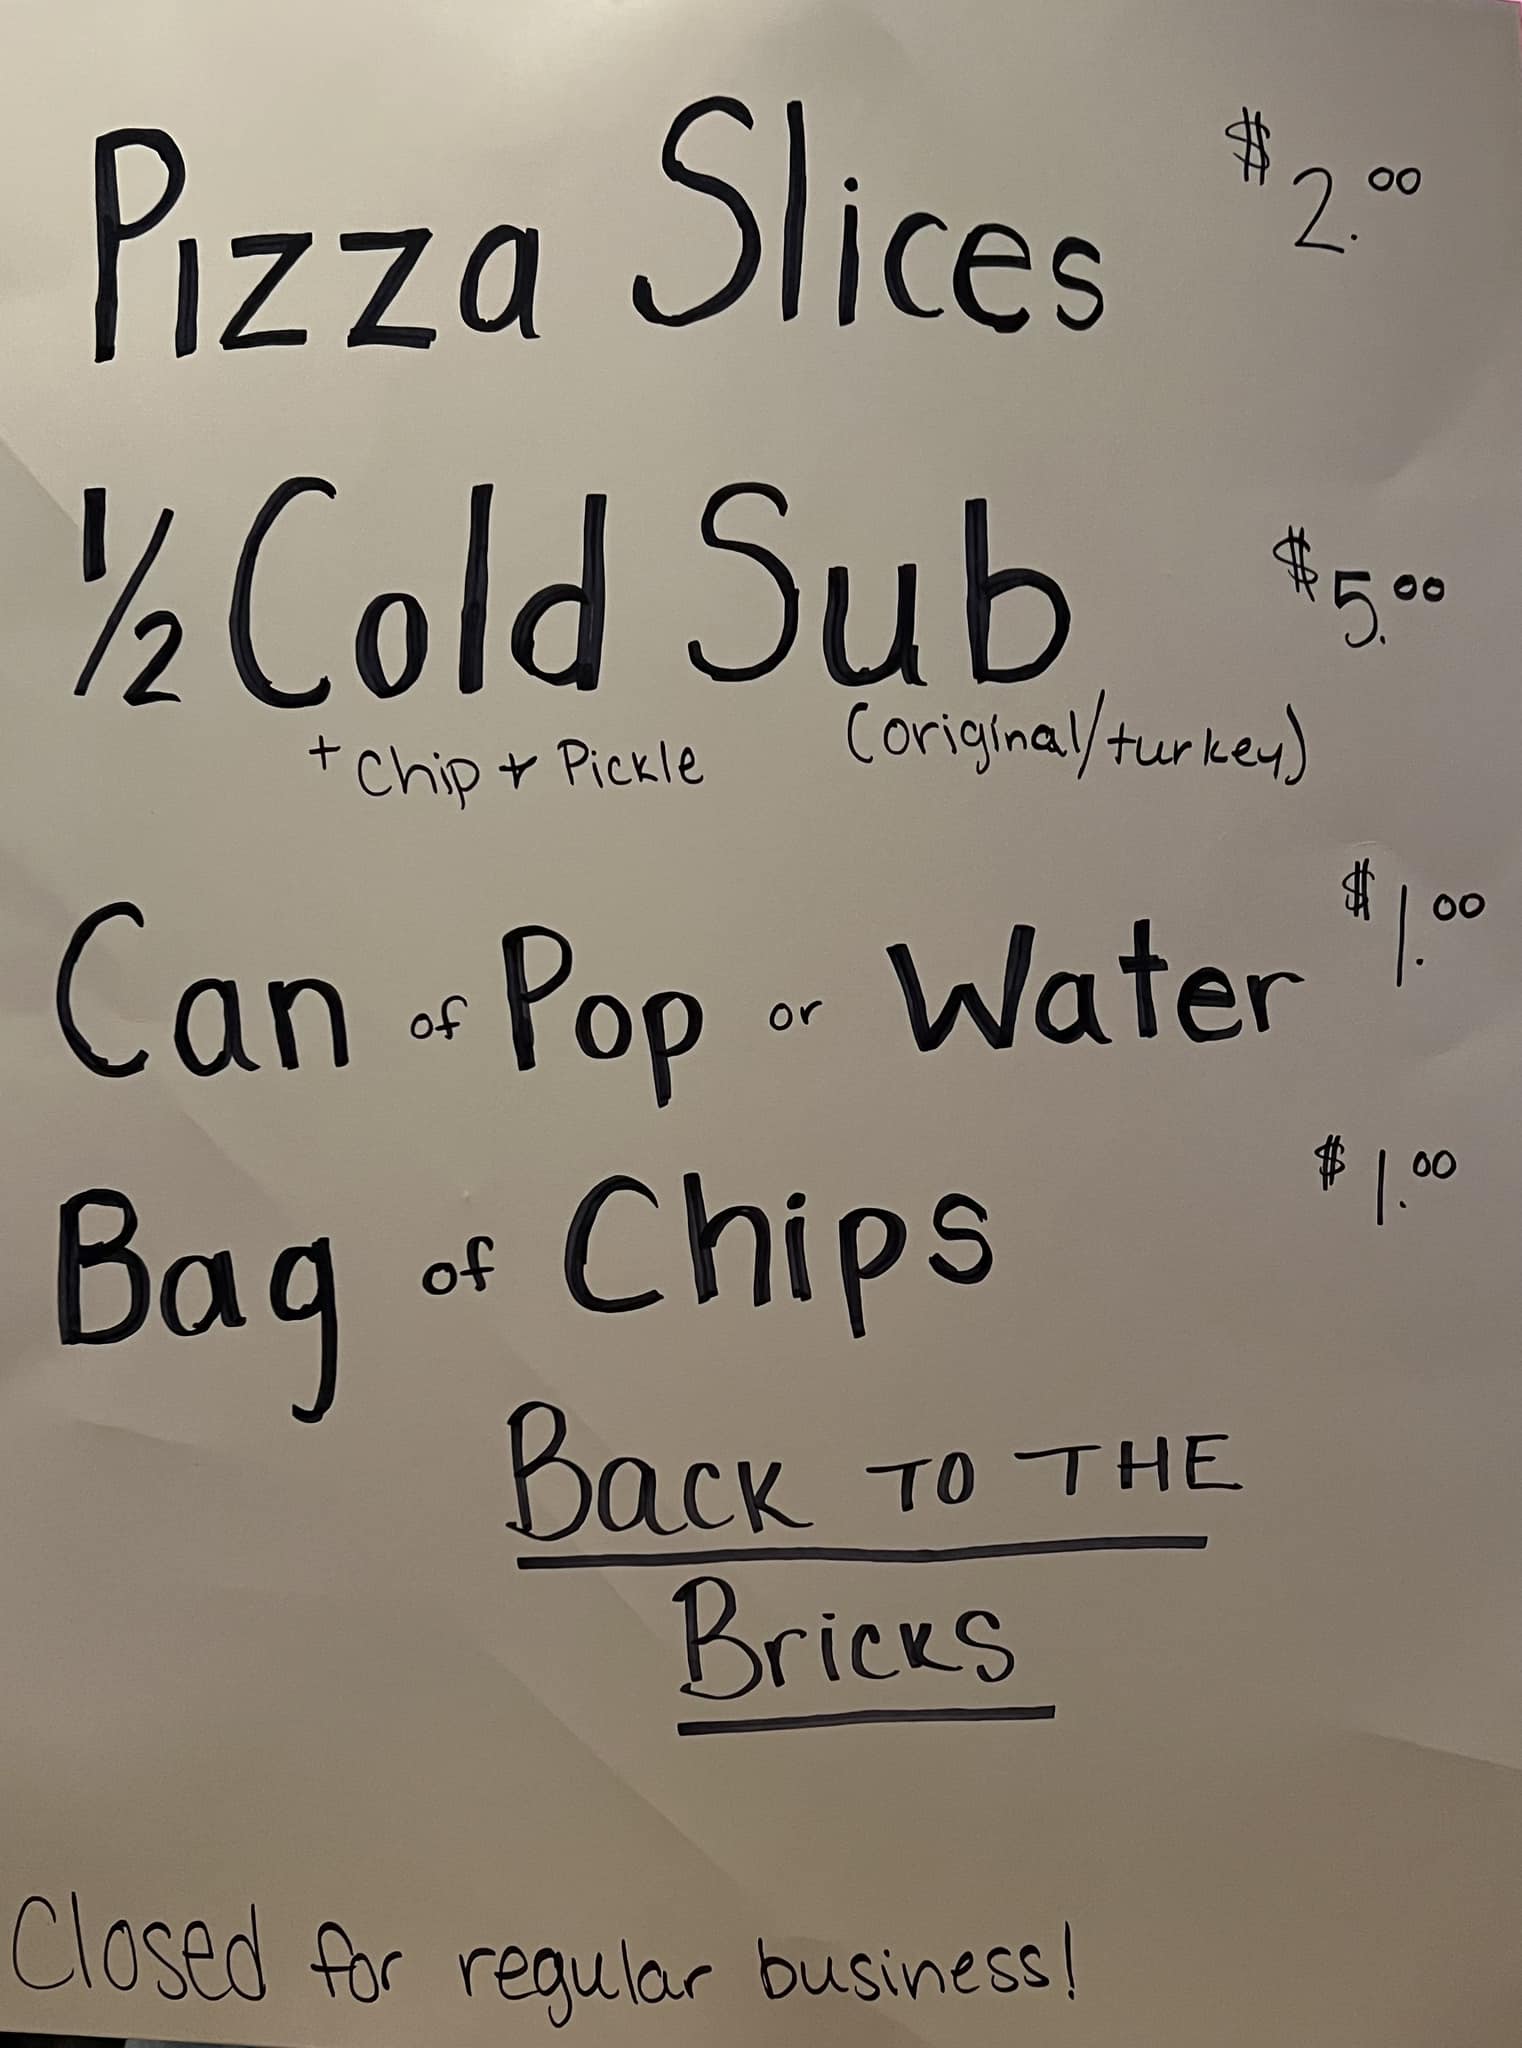 Pizza Slices $2.00
1/2 Cold Sub $5.00
+ Chip + Pickle (original/turkey)
Can of Pop or Water $1.00
Bag of Chips $1.00
BACK TO THE
BRICKS
Closed for regular business!